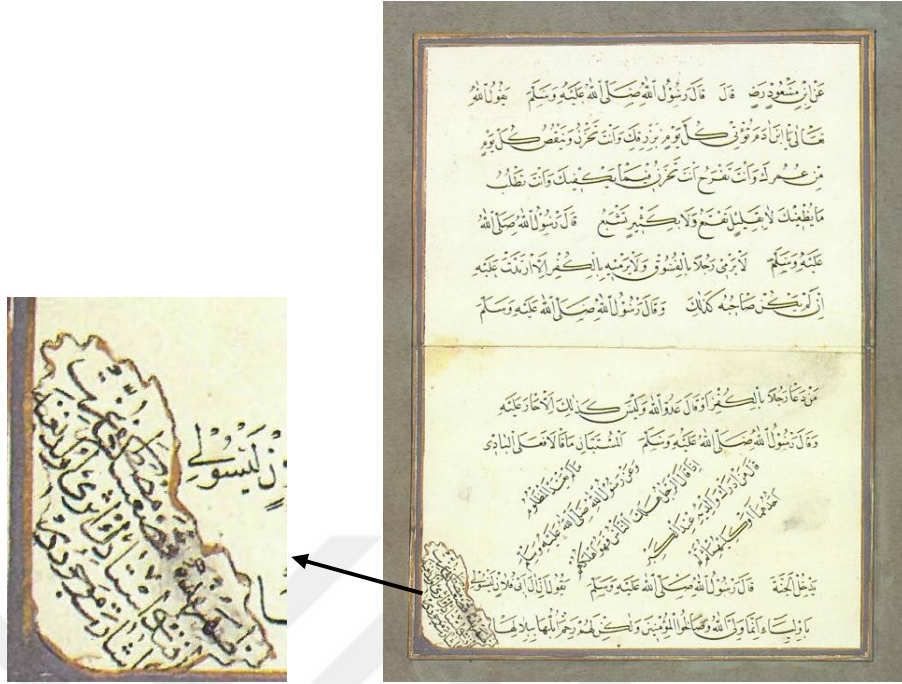 عن ابن مسعود رض قال قال رسول الله صلى الله عليه وسلم يقول الله
تعالى يا ابن ادم تؤتى كل يوم برزقك وانت تحزن وينقص كل يوم
من عمرك وانت تفرح انت تحزن فيما يكفيك وانت تطلب
ما يطغيك لا بقليل تقنع ولا بكثير تشبع قال رسول الله صلى الله
عليه وسلم لا يرمي رجلا بالفسوق ولا يرميه بالكفر الا ارتدت عليه
ان لم يكن صاحبه كذلك وقال رسول الله صلى الله عليه وسلم
من دعا رجلا بالكفر او قال عدو الله وليس كذلك الا حار عليه
وقال رسول الله صلى الله عليه وسلم المستبان ما قالا فعلى البادي
ما لم يعتد المظلوم
وعن رسول الله صلى الله عليه وسلم
اذا قال الرجل هلك الناس فهو اهلكهم
قال من ادرك والديه عند الكبر
احدهما او كليهما فلم
يدخل الجنة قال رسول الله صلى الله عليه وسلم يقول ان ال ابي فلان ليسوا لي
باولياء انما وليي الله وصالح المؤمنين ولكن لهم رحم ابلها ببلالها
ليسوا لي